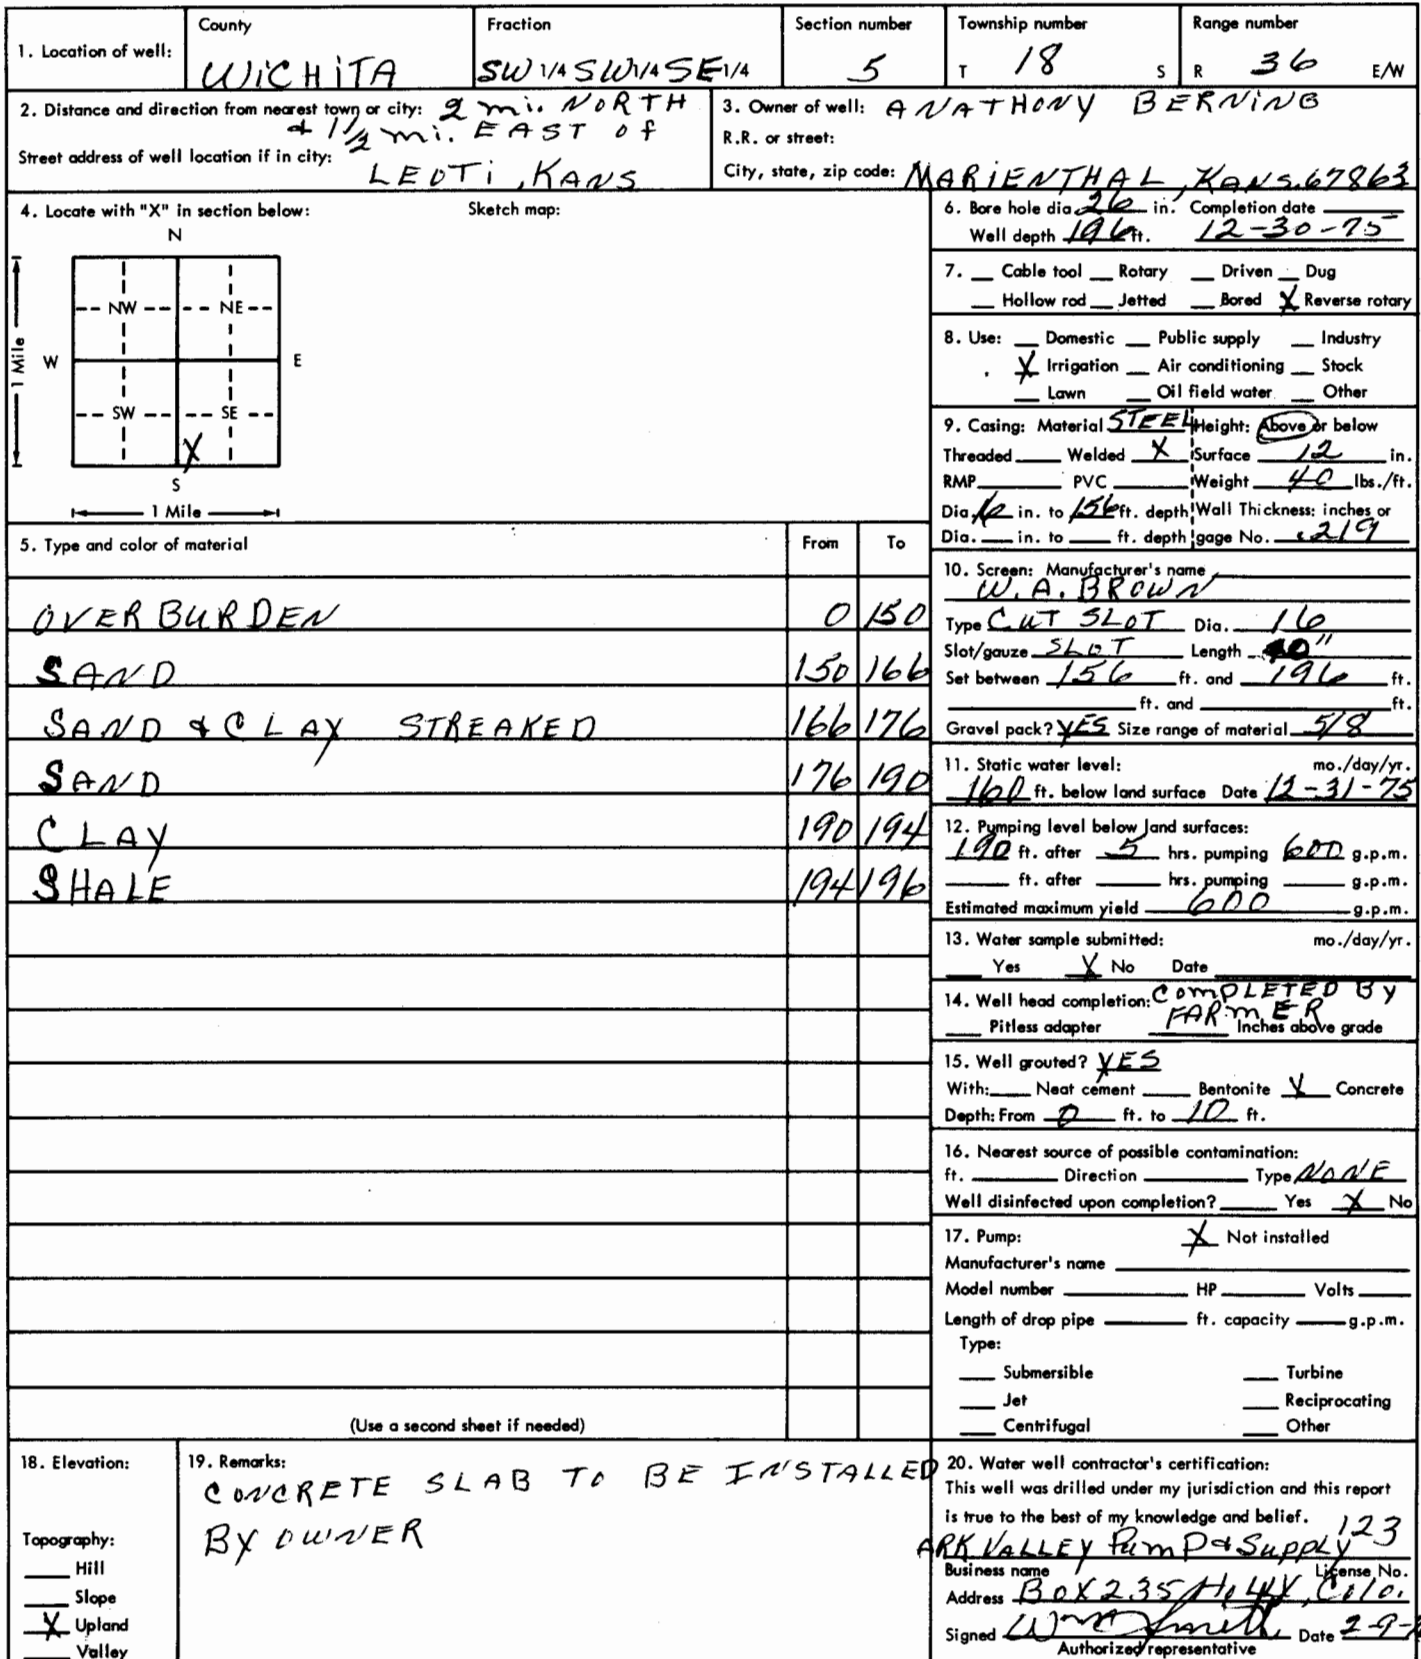 1. Location of well:
County
WiCHiTA
Fraction
SW 1/4 SW 1/4 SE 1/4
Section number
5
Township number
T 18 S
Range number
R 36 E/W
2. Distance and direction from nearest town or city: 2 mi. NORTH
& 1 1/2 mi. EAST of
Street address of well location if in city:
LEOTi, KANS
3. Owner of well: ANATHONY BERNING
R.R. or street:
City, state, zip code: MARiENTHAL, KANS. 67863
4. Locate with "X" in section below:
Sketch map:
N
NW NE
W E
1 Mile
SW SE
X
S
1 Mile
5. Type and color of material From To
OVERBURDEN 0 150
SAND 150 166
SAND & CLAY STREAKED 166 176
SAND 176 190
CLAY 190 194
SHALE 194 196
(Use a second sheet if needed)
6. Bore hole dia. 26 in. Completion date
Well depth 196 ft. 12-30-75
7. Cable tool Rotary Driven Dug
Hollow rod Jetted Bored X Reverse rotary
8. Use: Domestic Public supply Industry
X Irrigation Air conditioning Stock
Lawn Oil field water Other
9. Casing: Material STEEL Height: Above or below
Threaded Welded X Surface 12 in.
RMP PVC Weight 40 lbs./ft.
Dia. 16 in. to 156 ft. depth Wall Thickness: inches or
Dia. in. to ft. depth gage No. .219
10. Screen: Manufacturer's name
W.A. BROWN
Type CUT SLOT Dia. 16
Slot/gauze SLOT Length 40"
Set between 156 ft. and 196 ft.
ft. and ft.
Gravel pack? YES Size range of material 5/8
11. Static water level: mo./day/yr.
160 ft. below land surface Date 12-31-75
12. Pumping level below land surfaces:
190 ft. after 5 hrs. pumping 600 g.p.m.
ft. after hrs. pumping g.p.m.
Estimated maximum yield 600 g.p.m.
13. Water sample submitted: mo./day/yr.
Yes X No Date
14. Well head completion: COMPLETED BY
FARMER
Pitless adapter Inches above grade
15. Well grouted? YES
With: Neat cement Bentonite X Concrete
Depth: From 0 ft. to 10 ft.
16. Nearest source of possible contamination:
ft. Direction Type NONE
Well disinfected upon completion? Yes X No
17. Pump: X Not installed
Manufacturer's name
Model number HP Volts
Length of drop pipe ft. capacity g.p.m.
Type:
Submersible Turbine
Jet Reciprocating
Centrifugal Other
18. Elevation:
Topography:
Hill
Slope
X Upland
Valley
19. Remarks:
CONCRETE SLAB TO BE INSTALLED
BY OWNER
20. Water well contractor's certification:
This well was drilled under my jurisdiction and this report
is true to the best of my knowledge and belief.
ARK VALLEY PumP & Supply 123
Business name License No.
Address BOX 235 HoLLY, Colo.
Signed Date 2-9-
Authorized representative